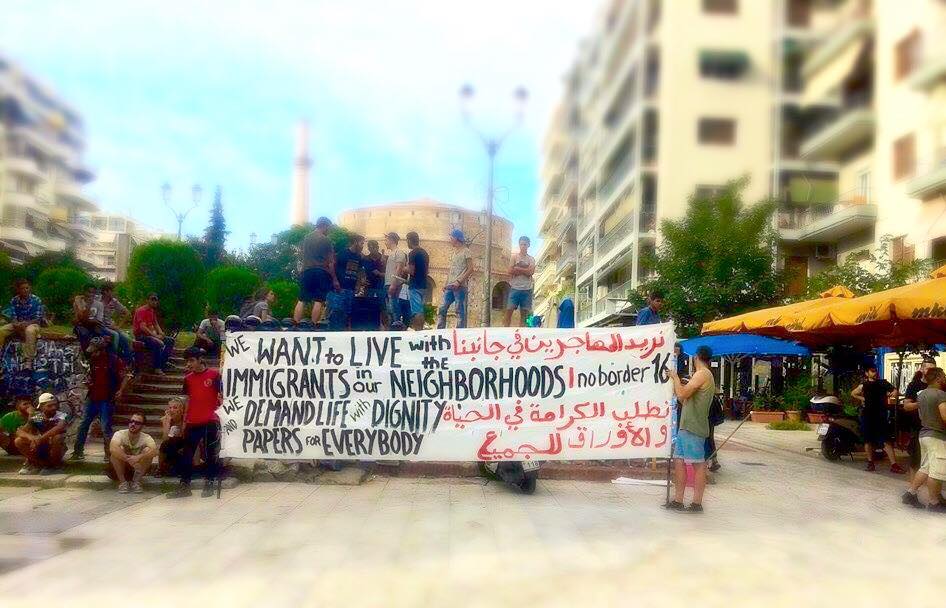 WE WANT to LIVE with the
IMMIGRANTS in our NEIGHBORHOODS | no border 16
WE DEMAND LIFE with DIGNITY
AND PAPERS FOR EVERYBODY
نريد المهاجرين في جانبنا
نطلب الكرامة في الحياة
و الأوراق للجميع